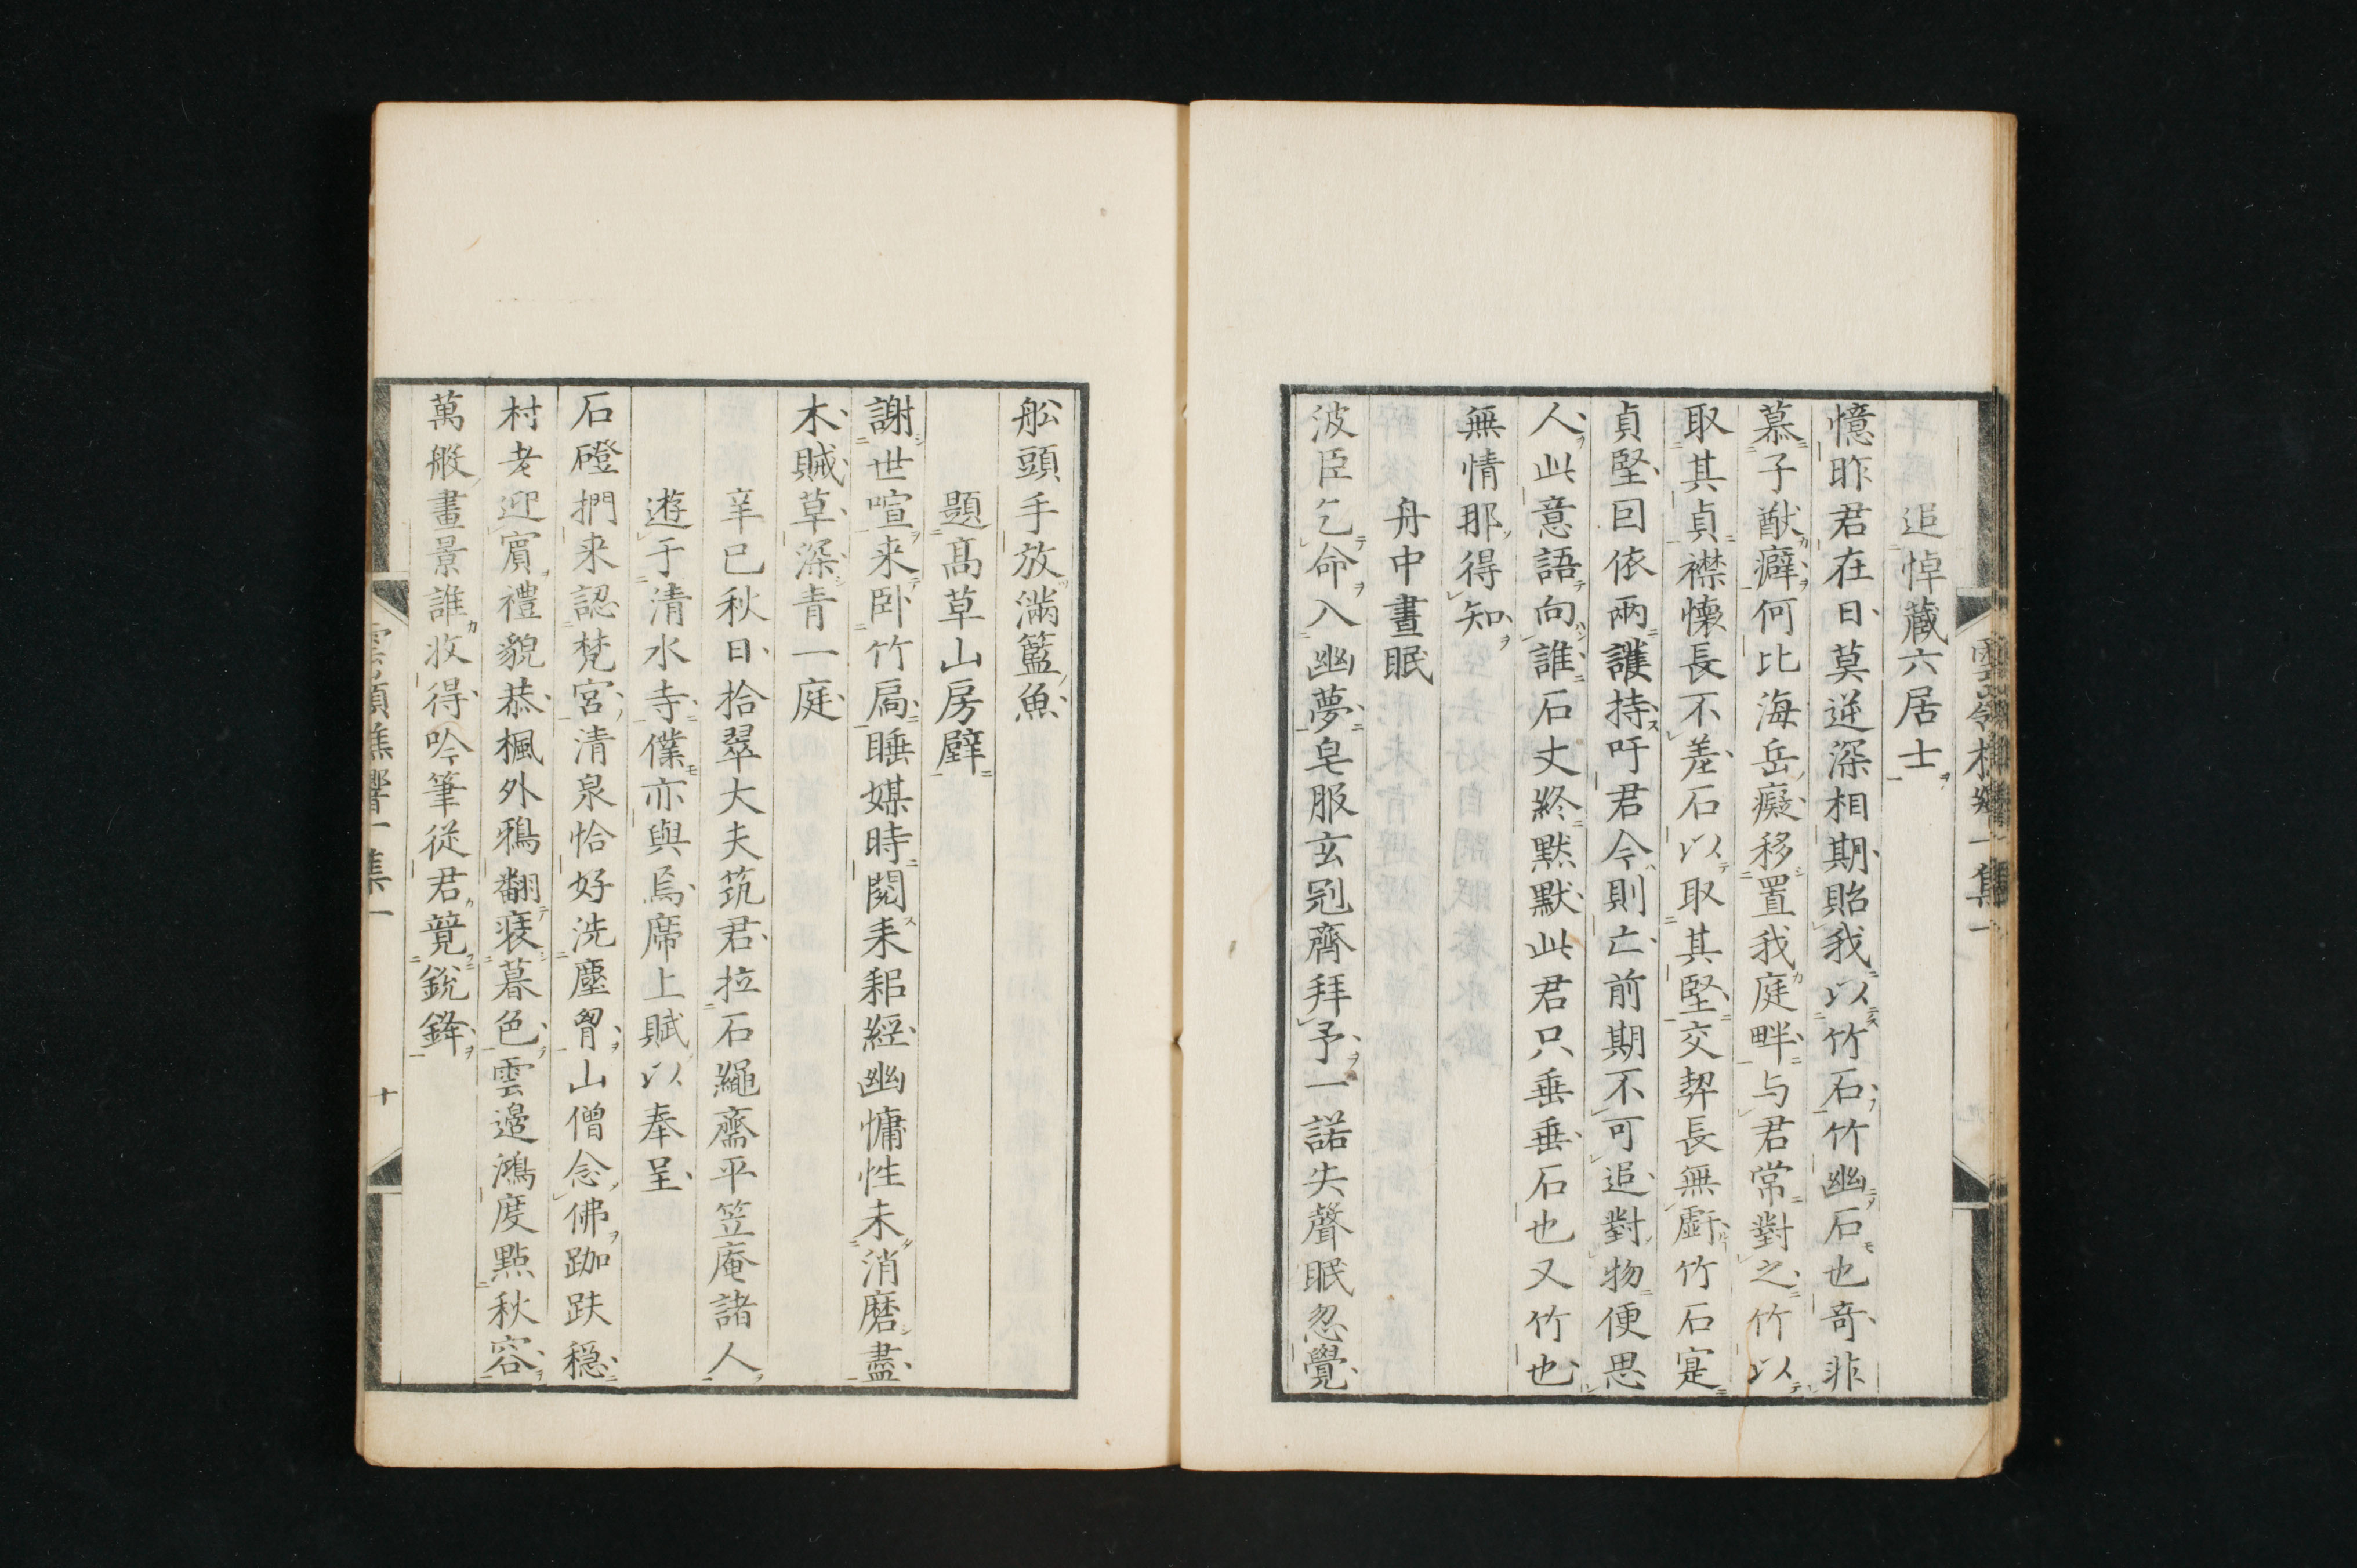 追悼藏六居士
憶昨君在日莫逆深相期貽我以竹石竹幽石也奇非
慕子猷癖何比海岳癡移置我庭畔与君常對之竹以
取其貞襟懷長不差石以取其堅交契長無虧竹石寔
貞堅回依兩護持吁君今則亡前期不可追對物便思
人此意語向誰石丈終默默此君只垂垂石也又竹也
無情那得知
舟中晝眠
波臣乞命入幽夢皂服玄冠齊拜予一諾失聲眠忽覺
舩頭手放滿籃魚
題髙草山房壁
謝世喧来卧竹扃睡媒時閱耒耜經幽慵性未消磨盡
木贓草深青一庭
辛巳秋日拾翠大夫筑君拉石繩齋平笠庵諸人
遊于清水寺僕亦與焉席上賦以奉呈
石磴捫来認梵宮清泉恰好洗塵胷山僧念佛跏趺穏
村老迎賓禮貌恭楓外鴉翻裛暮色雲邉鴻度點秋容
萬般畫景誰收得吟筆従君競銳鋒
雲嶺樵響一集一
十